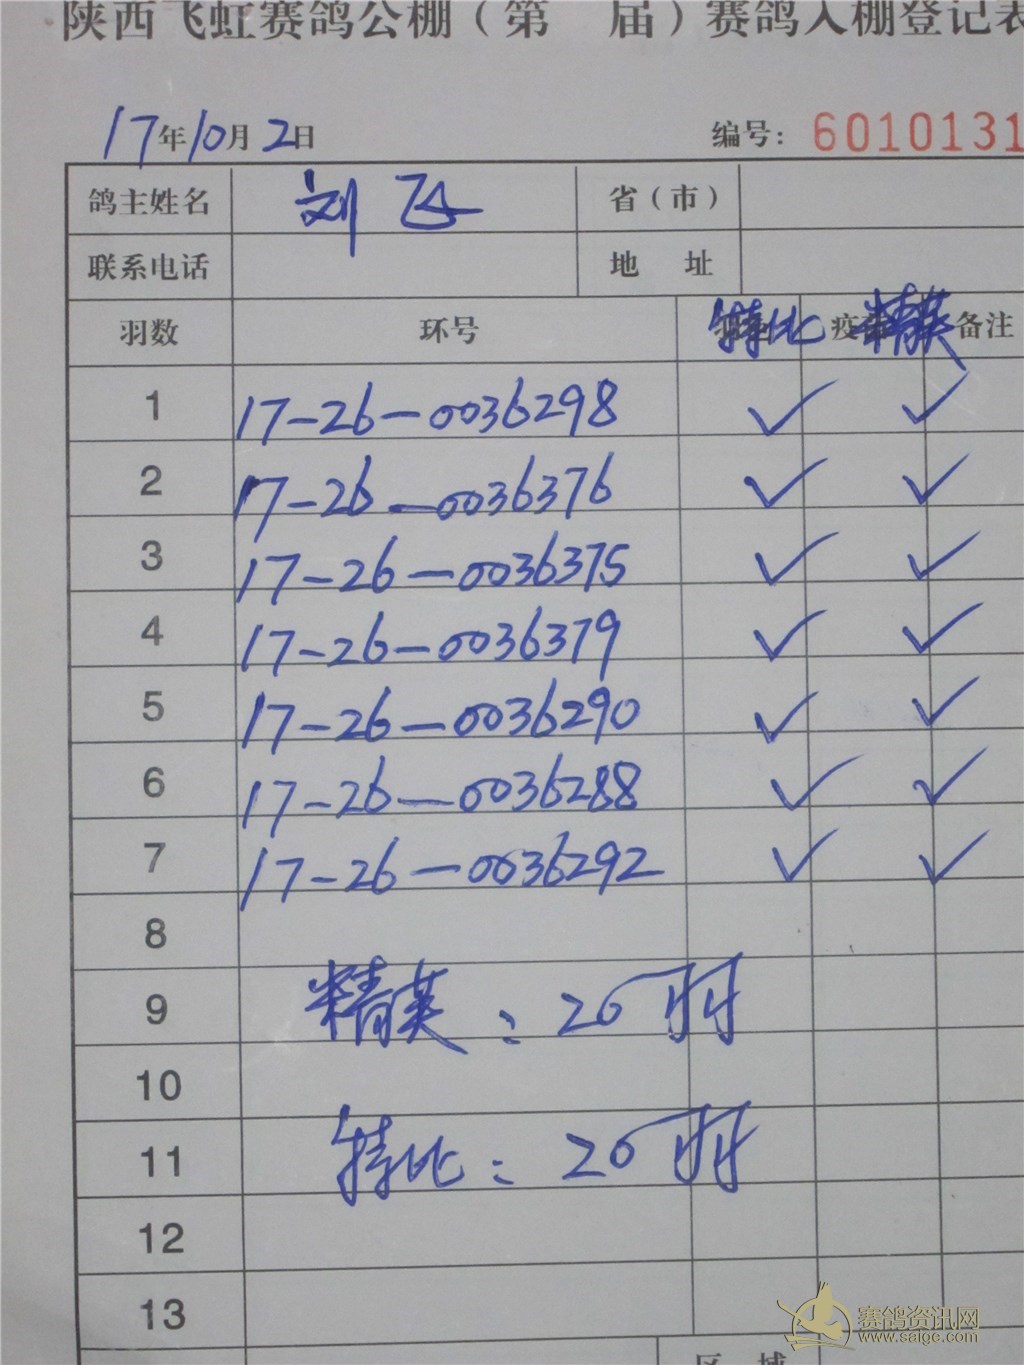 陕西飞虹赛鸽公棚（第 届）赛鸽入棚登记表
17年10月2日 编号：6010131
鸽主姓名 刘飞 省（市）
联系电话 地 址
羽数 环号 特比 疫 精英 备注
1 17-26-0036298 ✓ ✓
2 17-26-0036376 ✓ ✓
3 17-26-0036375 ✓ ✓
4 17-26-0036379 ✓ ✓
5 17-26-0036290 ✓ ✓
6 17-26-0036288 ✓ ✓
7 17-26-0036292 ✓ ✓
8
9 精英：20羽
10
11 特比：20羽
12
13
区 域
赛鸽资讯网
www.saige.com